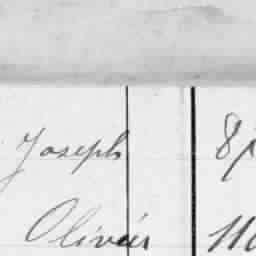 Joseph 8
Olivier